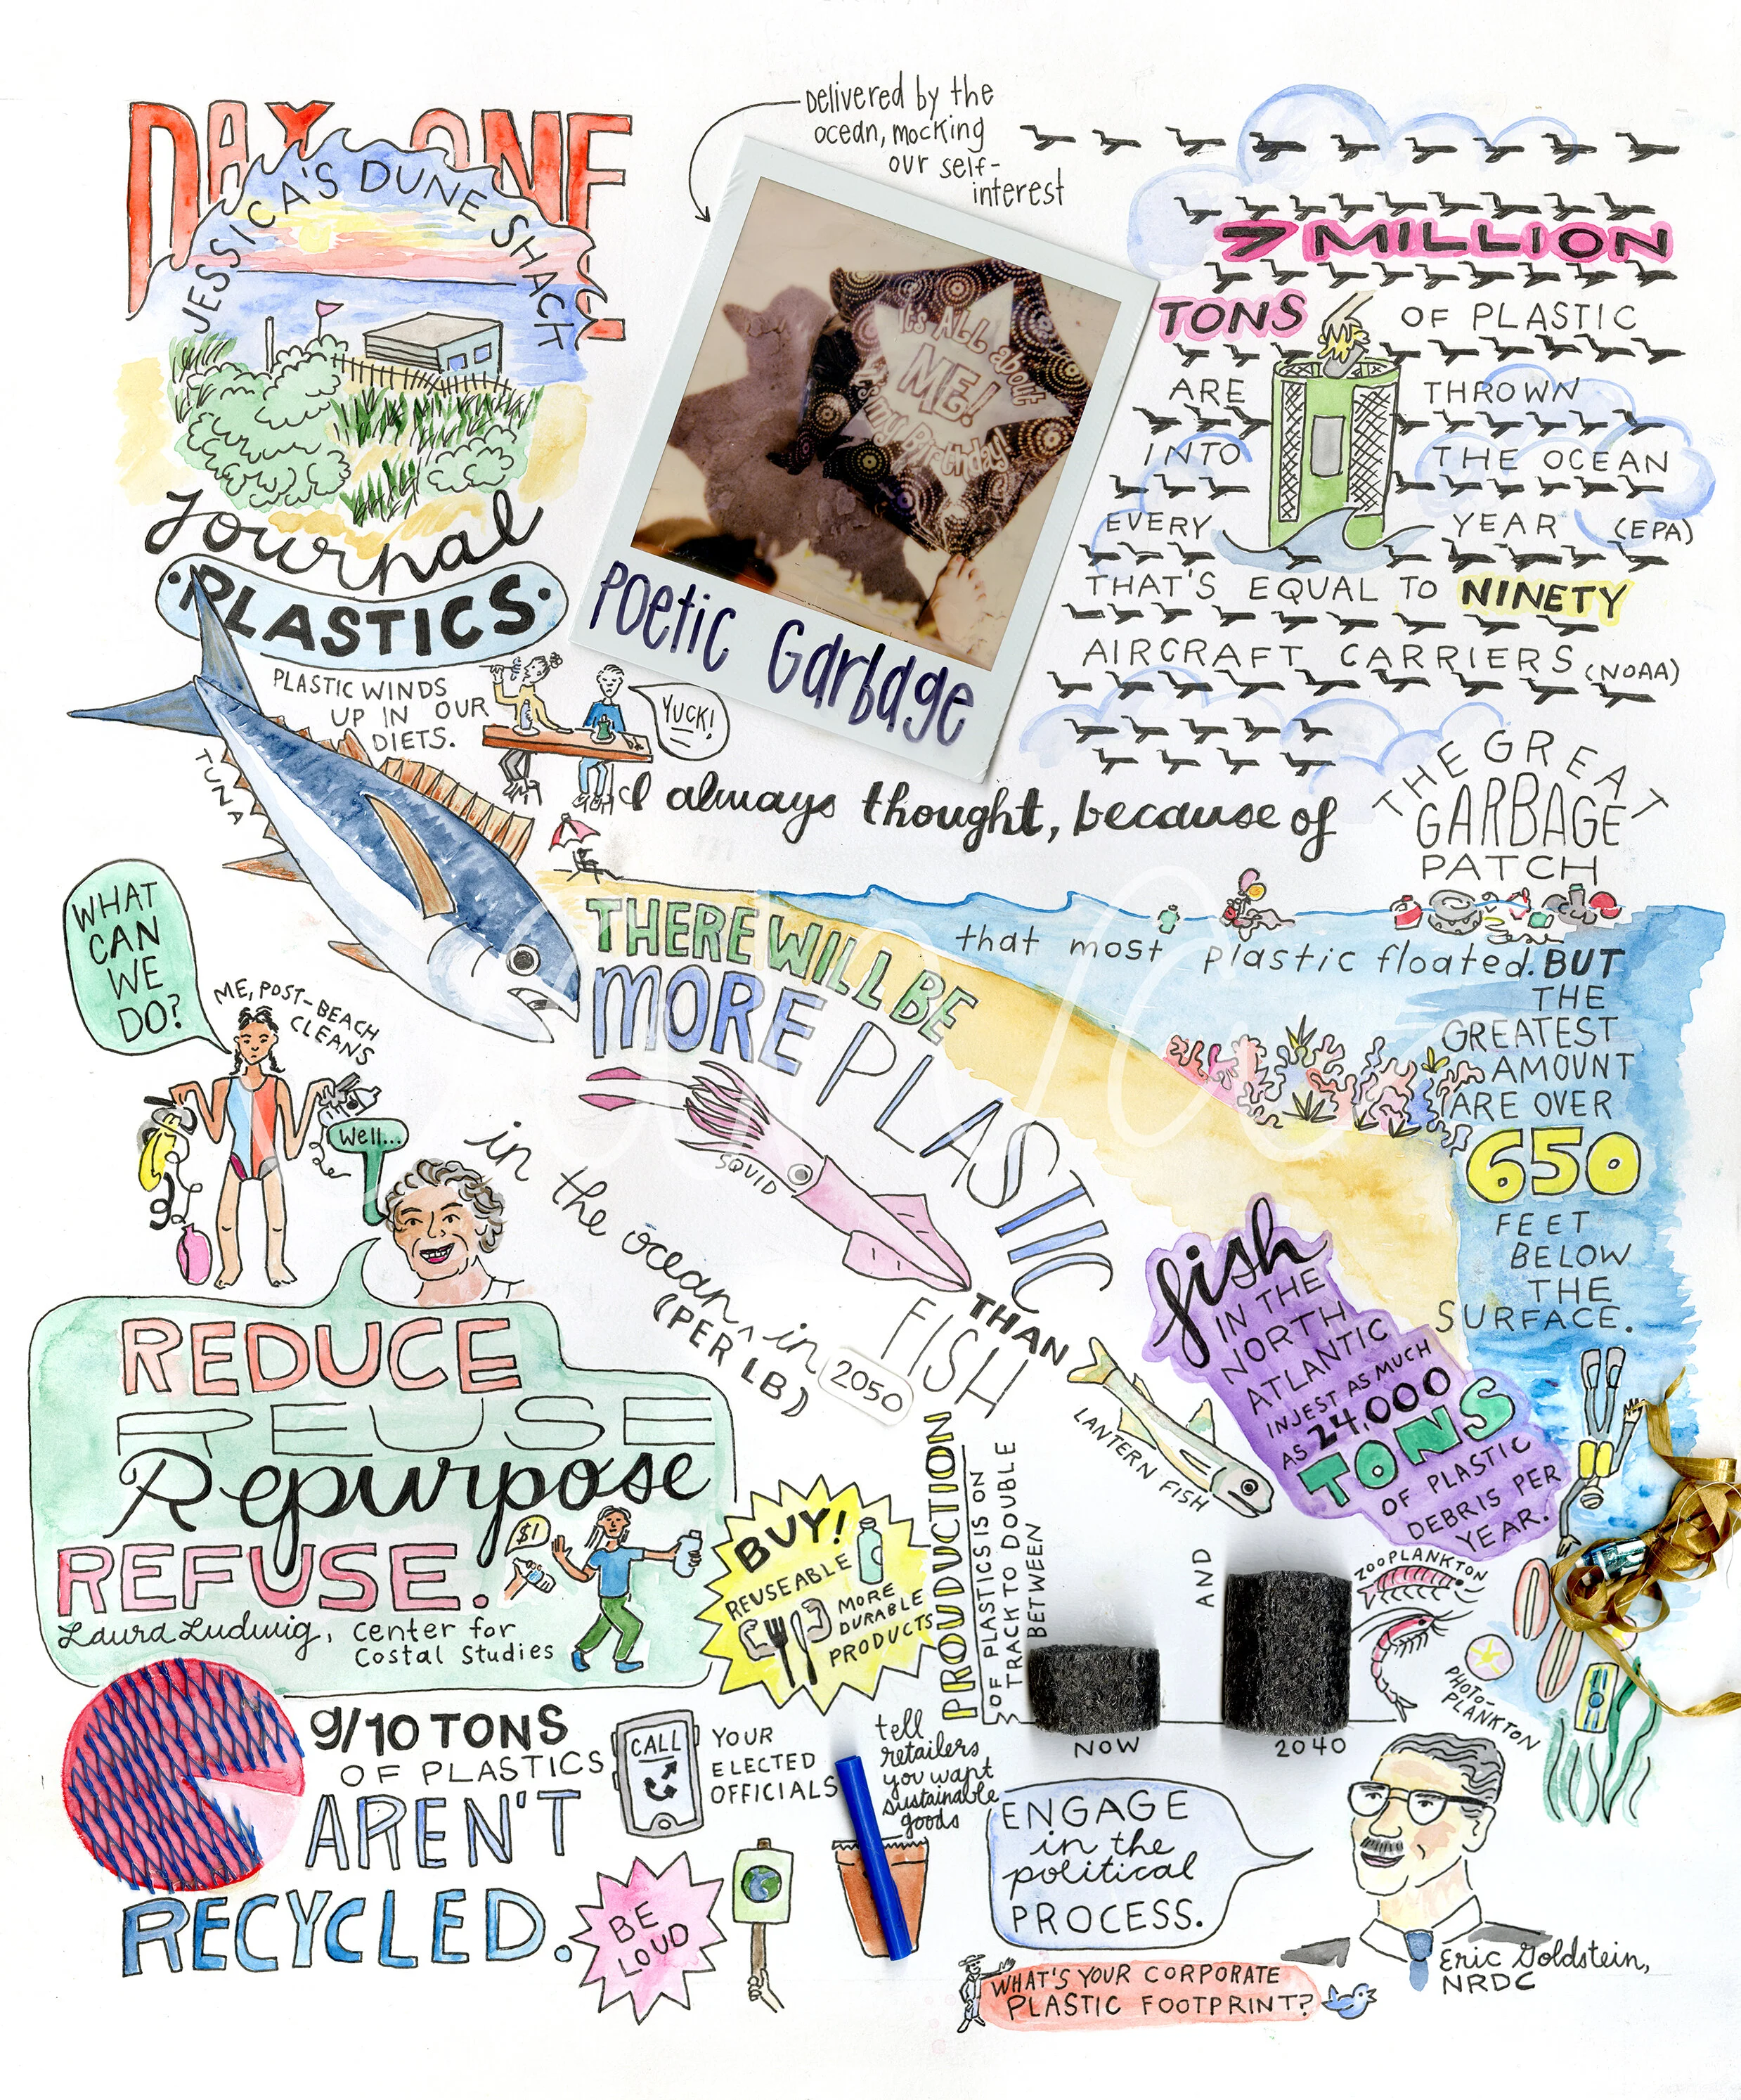 DAY ONE
JESSICA'S DUNE SHACK
Journal
PLASTICS
PLASTIC WINDS
UP IN OUR
DIETS.
YUCK!
TUNA
Delivered by the
ocean, mocking
our self-
interest
It's ALL about
ME!
It's my Birthday!
Poetic Garbage
7 MILLION
TONS OF PLASTIC
ARE THROWN
INTO THE OCEAN
EVERY YEAR (EPA)
THAT'S EQUAL TO NINETY
AIRCRAFT CARRIERS (NOAA)
I always thought, because of
THE GREAT
GARBAGE
PATCH
that most plastic floated. BUT
THE
GREATEST
AMOUNT
ARE OVER
650
FEET
BELOW
THE
SURFACE.
THERE WILL BE
MORE PLASTIC
in the ocean, in 2050
(PER LB)
THAN
FISH
SQUID
LANTERN FISH
fish
IN THE
NORTH
ATLANTIC
INJEST AS MUCH
AS 24,000
TONS
OF PLASTIC
DEBRIS PER
YEAR.
WHAT
CAN
WE
DO?
ME, POST-BEACH
CLEANS
Well...
REDUCE
REUSE
Repurpose
REFUSE.
$1
Laura Ludwig, Center for
Costal Studies
BUY!
REUSEABLE
MORE
DURABLE
PRODUCTS
PROUDUCTION
OF PLASTICS IS ON
TRACK TO DOUBLE
BETWEEN
AND
NOW
2040
ZOOPLANKTON
PHOTO-
PLANKTON
9/10 TONS
OF PLASTICS
AREN'T
RECYCLED.
CALL
YOUR
ELECTED
OFFICIALS
tell
retailers
you want
sustainable
goods
BE
LOUD
ENGAGE
in the
political
PROCESS.
Eric Goldstein,
NRDC
WHAT'S YOUR CORPORATE
PLASTIC FOOTPRINT?